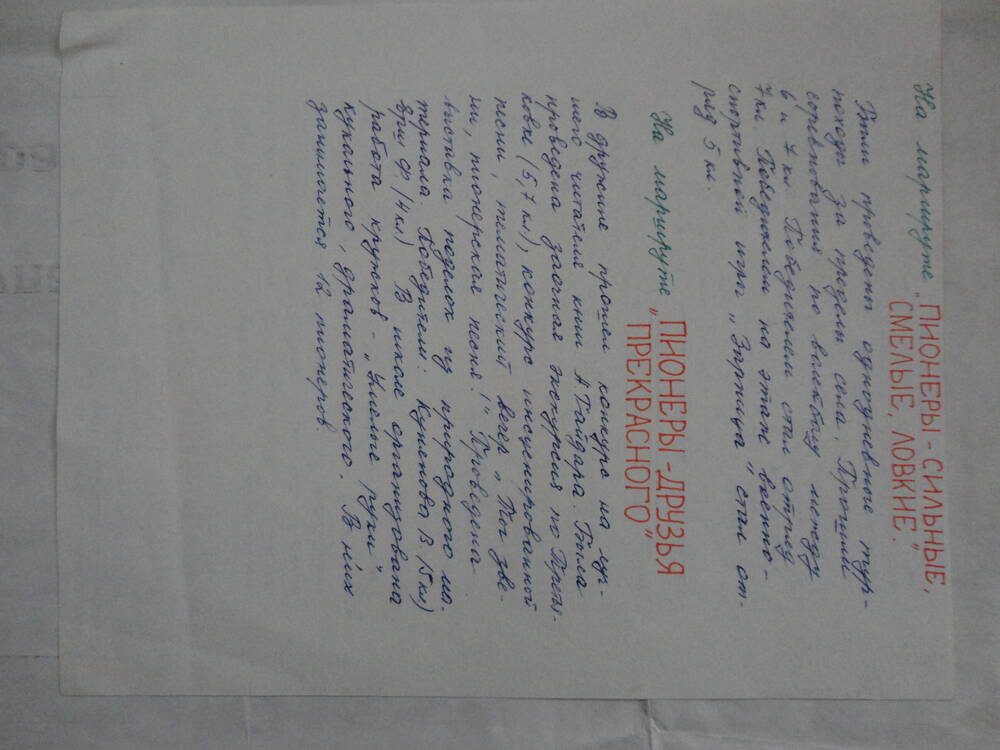 На маршруте „ПИОНЕРЫ-СИЛЬНЫЕ,
СМЕЛЫЕ, ЛОВКИЕ."
проведены однодневные тур-
походы за пределы села. Прошли
соревнования по волейболу между
6 и 7 кл. Победителем стал отряд
7 кл. Победителем на этапе военно-
спортивной игры „Зарница" стал от-
ряд 5 кл.
На маршруте „ПИОНЕРЫ-ДРУЗЬЯ
ПРЕКРАСНОГО"
В дружине прошел конкурс на луч-
шего читателя книг А Гайдара. Была
проведена заочная экскурсия по Треть-
ковке (5,7 кл), конкурс инсценированной
песни, тематический вечер „Ты зве-
ни, пионерская песня!" Проведена
выставка поделок из природного ма-
териала. Победители: Куликова В (5 кл)
Ф (4 кл) В школе организована
работа кружков - „Умелые руки",
кукольного, драматического. В них
занимается 12 пионеров.